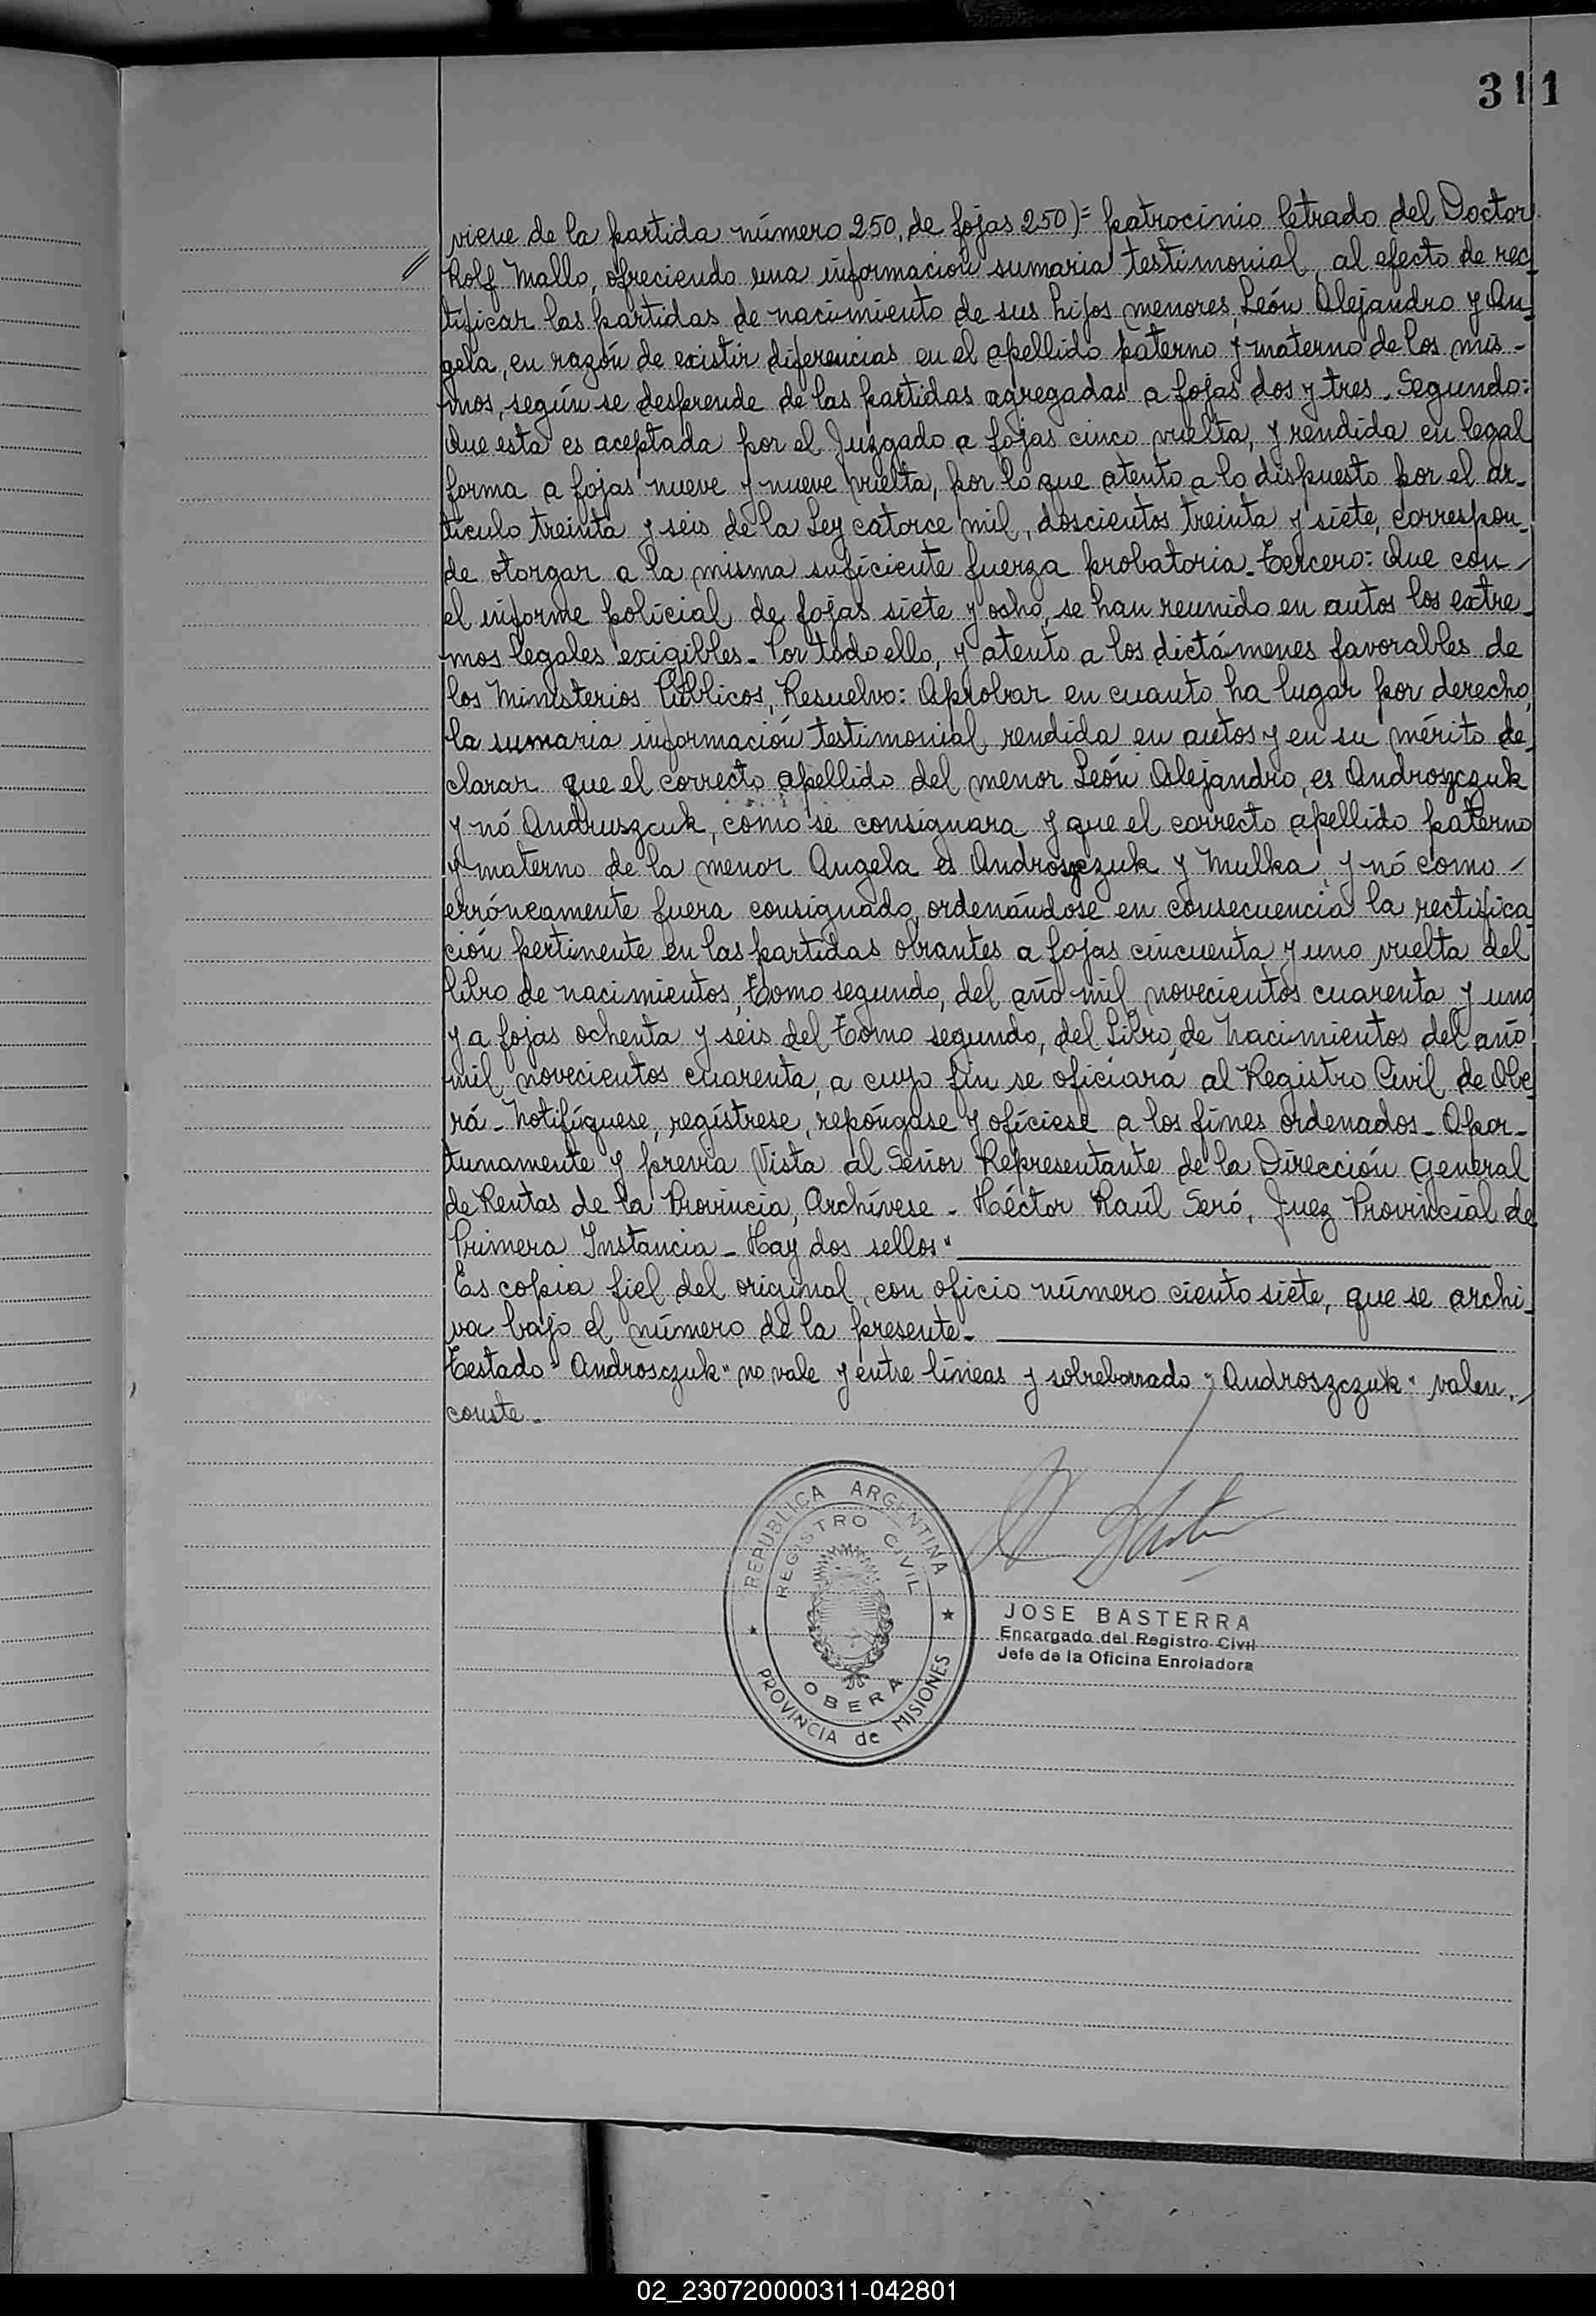 311
viene de la partida número 250, de fojas 250)= patrocinio letrado del Doctor
Rolf Mallo, ofreciendo una información sumaria testimonial, al efecto de rec-
tificar las partidas de nacimiento de sus hijos menores, León Alejandro y An-
gela, en razón de existir diferencias en el apellido paterno y materno de los mis-
mos, según se desprende de las partidas agregadas a fojas dos y tres. Segundo:
Que esta es aceptada por el Juzgado a fojas cinco vuelta, y rendida en legal
forma a fojas nueve y nueve vuelta, por lo que atento a lo dispuesto por el ar-
tículo treinta y seis de la Ley catorce mil, doscientos treinta y siete, correspon-
de otorgar a la misma suficiente fuerza probatoria_Tercero: Que con
el informe policial de fojas siete y ocho, se han reunido en autos los extre-
mos legales exigibles_Por todo ello, y atento a los dictámenes favorables de
los Ministerios Públicos, Resuelvo: Aprobar en cuanto ha lugar por derecho,
la sumaria información testimonial rendida en autos y en su mérito de-
clarar que el correcto apellido del menor León Alejandro, es Androszczuk
y nó Andruszcuk, como se consignara y que el correcto apellido paterno
y materno de la menor Angela es Androszczuk y Mulka, y nó como
erróneamente fuera consignado, ordenándose en consecuencia la rectifica-
ción pertinente en las partidas obrantes a fojas cincuenta y uno vuelta del
libro de nacimientos, Tomo segundo, del año mil novecientos cuarenta y uno
y a fojas ochenta y seis del Tomo segundo, del Libro de Nacimientos del año
mil novecientos cuarenta, a cuyo fin se oficiará al Registro Civil de Obe-
rá_Notifíquese, regístrese, repóngase y ofíciese a los fines ordenados_Opor-
tunamente y previa Vista al Señor Representante de la Dirección General
de Rentas de la Provincia, Archívese_Héctor Raúl Seró, Juez Provincial de
Primera Instancia_Hay dos sellos"
Es copia fiel del original, con oficio número ciento siete, que se archi-
va bajo el número de la presente_
Testado "Androsczuk" no vale y entre líneas y sobreborrado "Androszczuk" valen.
conste_
REPUBLICA ARGENTINA
REGISTRO CIVIL
OBERA
PROVINCIA de MISIONES
JOSE BASTERRA
Encargado del Registro Civil
Jefe de la Oficina Enroladora
02_230720000311-042801